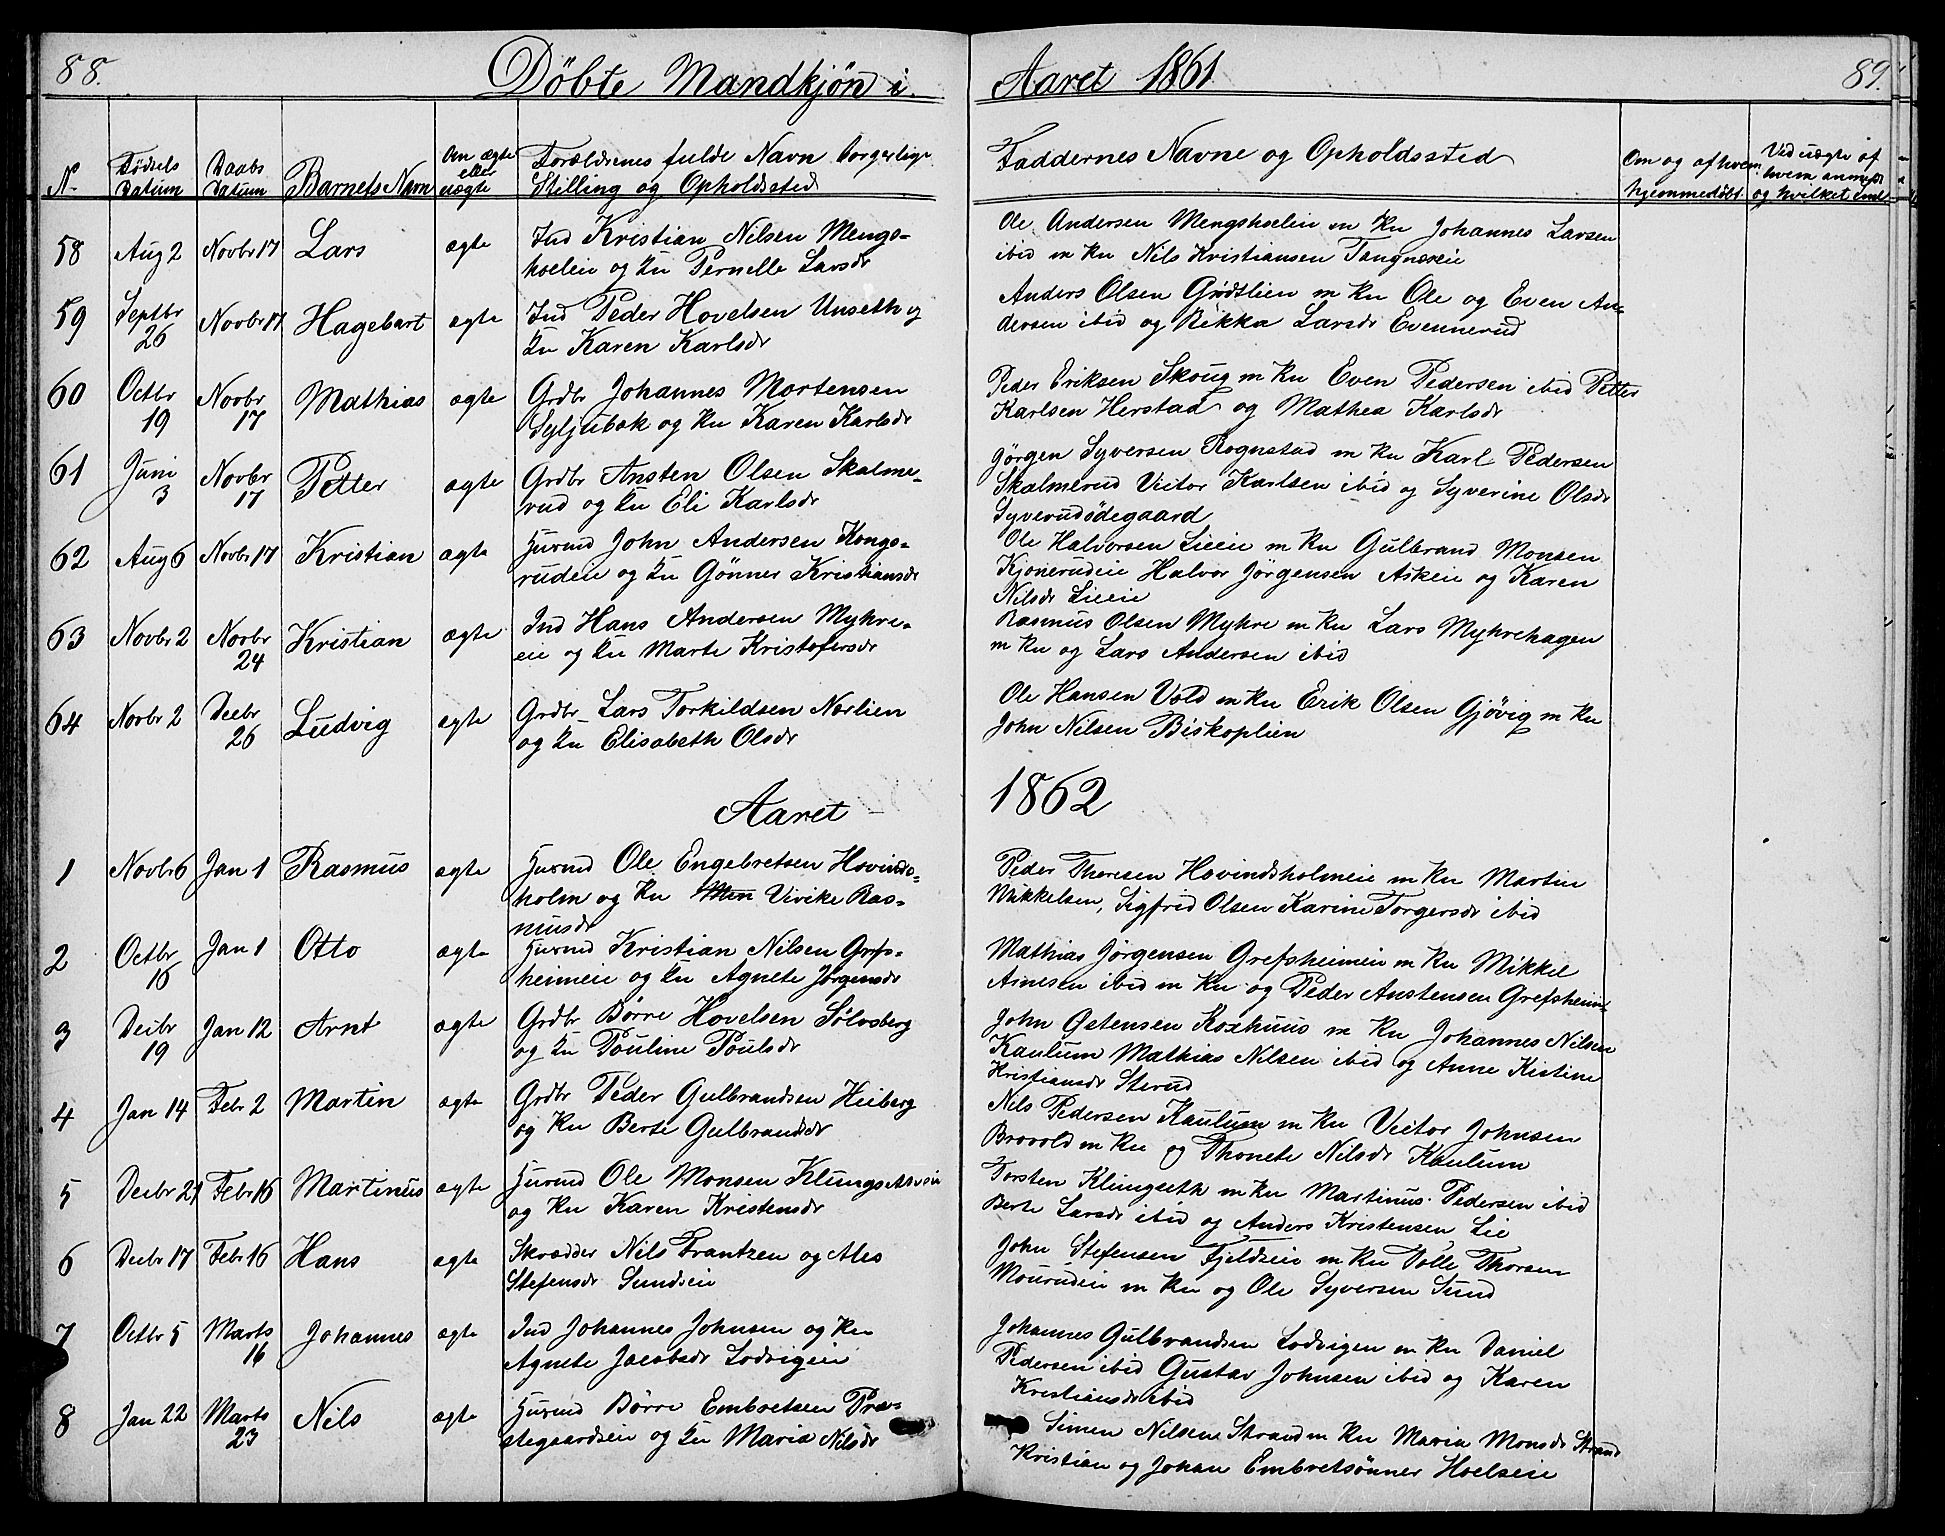 88.
Döbte Mandkjön i
Aaret 1861
89.
N. Födsels Datum Daabs Datum Barnets Navn Om ægte eller uægte Forældrenes fulde Navn borgerlige Stilling og Opholdssted
Faddernes Navne og Opholdssted Om og af hvem hjemmedöbt Ved uægte af hvem anmeldt og hvilket
58 Aug 2 Novbr 17 Lars ægte Ind Kristian Nilsen Mengs-
hoeleie og Ku Pernelle Larsdr
Ole Andersen Mengshoeleie m Ku Johannes Larsen
ibid m Ku Nils Kristiansen Tangnæseie
59 Septbr 26 Novbr 17 Hagebart ægte Ind Peder Hovelsen Unseth og
Ku Karen Karlsdr
Anders Olsen Grödtlien m Ku Ole og Even An-
dersen ibid og Rikka Larsdr Evennerud
60 Octbr 19 Novbr 17 Mathias ægte Grdbr Johannes Mortensen
Syljubak og Ku Karen Karlsdr
Peder Eriksen Skoug m Ku Even Pedersen ibid Petter
Karlsen Herstad og Mathea Karlsdr
61 Juni 3 Novbr 17 Petter ægte Grdbr Ansten Olsen Skalme-
rud og Ku Eli Karlsdr
Jörgen Syversen Rognstad m Ku Karl Pedersen
Skalmerud Victor Karlsen ibid og Syverine Olsdr
Syverudödegaard
62 Aug 6 Novbr 17 Kristian ægte Husmd John Andersen Kongs-
rudeie og Ku Gönner Kristiansdr
Ole Halvorsen Lieeie m Ku Gulbrand Monsen
Kjonerudeie Halvor Jörgensen Askeie og Karen
Nilsdr Lieeie
63 Novbr 2 Novbr 24 Kristian ægte Ind Hans Andersen Myhre-
eie og Ku Marte Kristofersdr
Rasmus Olsen Myhre m Ku Lars Myhrehagen
m Ku og Lars Andersen ibid
64 Novbr 2 Decbr 26 Ludvig ægte Grdbr Lars Torkildsen Norlien
og Ku Elisabeth Olsdr
Ole Hansen Vold m Ku Erik Olsen Gjövig m Ku
John Nilsen Biskoplien
Aaret
1862
1 Novbr 6 Jan 1 Rasmus ægte Husmd Ole Engebretsen Hovinds-
holm og Ku Vivike Ras-
musdr
Peder Thoresen Hovindsholmeie m Ku Martin
Mikkelsen, Sigfrid Olsen Karine Torgersdr ibid
2 Octbr 16 Jan 1 Otto ægte Husmd Kristian Nilsen Grefs-
heimeie og Ku Agnete Jörgensdr
Mathias Jörgensen Grefsheimeie m Ku Mikkel
Arnesen ibid m Ku og Peder Anstensen Grefsheim
3 Decbr 19 Jan 12 Arnt ægte Grdbr Börre Hovelsen Sölvsberg
og Ku Pouline Poulsdr
John Östensen Koxhuus m Ku Johannes Nilsen
Kaulum Mathias Nilsen ibid og Anne Kistine
Kristiansdr Sterud
4 Jan 14 Febr 2 Martin ægte Grdbr Peder Gulbrandsen Heiberg
og Ku Berte Gulbrandsdr
Nils Pedersen Kaulum m Ku Victor Johnsen
Brovold m Ku og Thonete Nilsdr Kaulum
5 Decbr 21 Febr 16 Martinus ægte Husmd Ole Monsen
og Ku Karen Kristensdr
Torsten Klungseth m Ku Martinus Pedersen ibid
Berte Larsdr ibid og Anders Kristensen Lie
6 Decbr 17 Febr 16 Hans ægte Skrædder Nils Frantzen og Ales
Stefensdr Sundseie
John Stefensen Fjeldseie m Ku Polle Thorsen
Mourudeie m Ku og Ole Syversen Sund
7 Octbr 5 Marts 16 Johannes ægte Ind Johannes Johnsen og Ku
Agnete Jacobsdr Lodvigeie
Johannes Gulbrandsen Lodvigen m Ku Daniel
Pedersen ibid Gustav Johnsen ibid og Karen
Kristiansdr ibid
8 Jan 22 Marts 23 Nils ægte Husmd Börre Embretsen Præ-
stegaardseie og Ku Maria Nilsdr
Simen Nilsen Strand m Ku Maria Monsdr Strand
Kristian og Johan Embretsönner Hoelseie